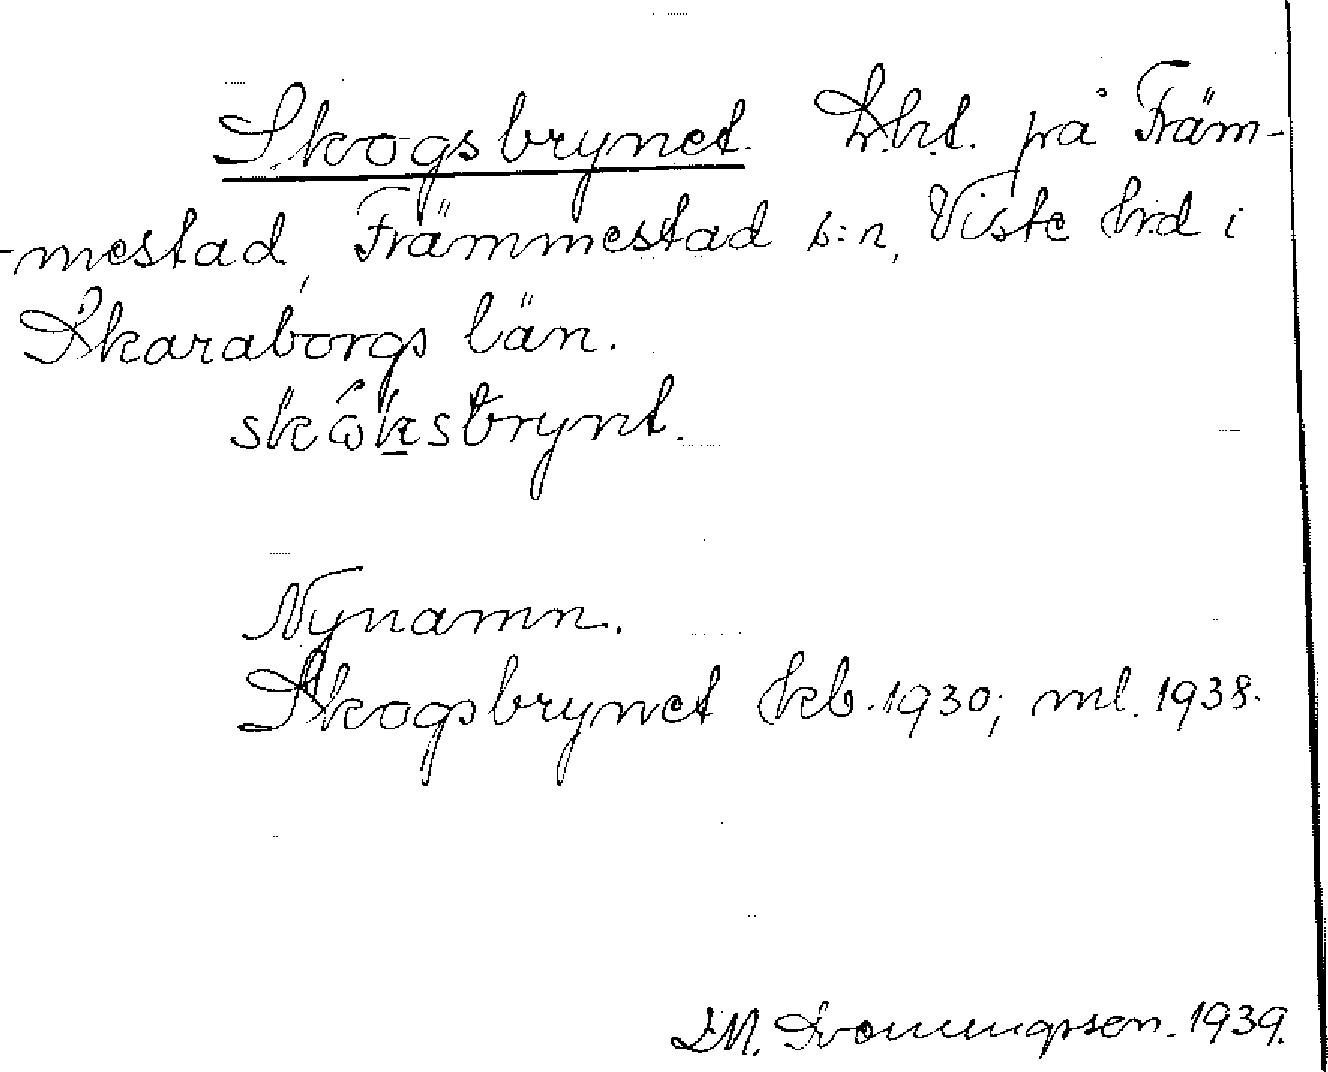 Skogsbrynet. L.h.t. på Främ-
-mestad, Främmestad s:n, Viste hrd i
Skaraborgs län.
skóksbrynt.
Nynamn.
Skogsbrynet kb. 1930; ml. 1938.
1939.